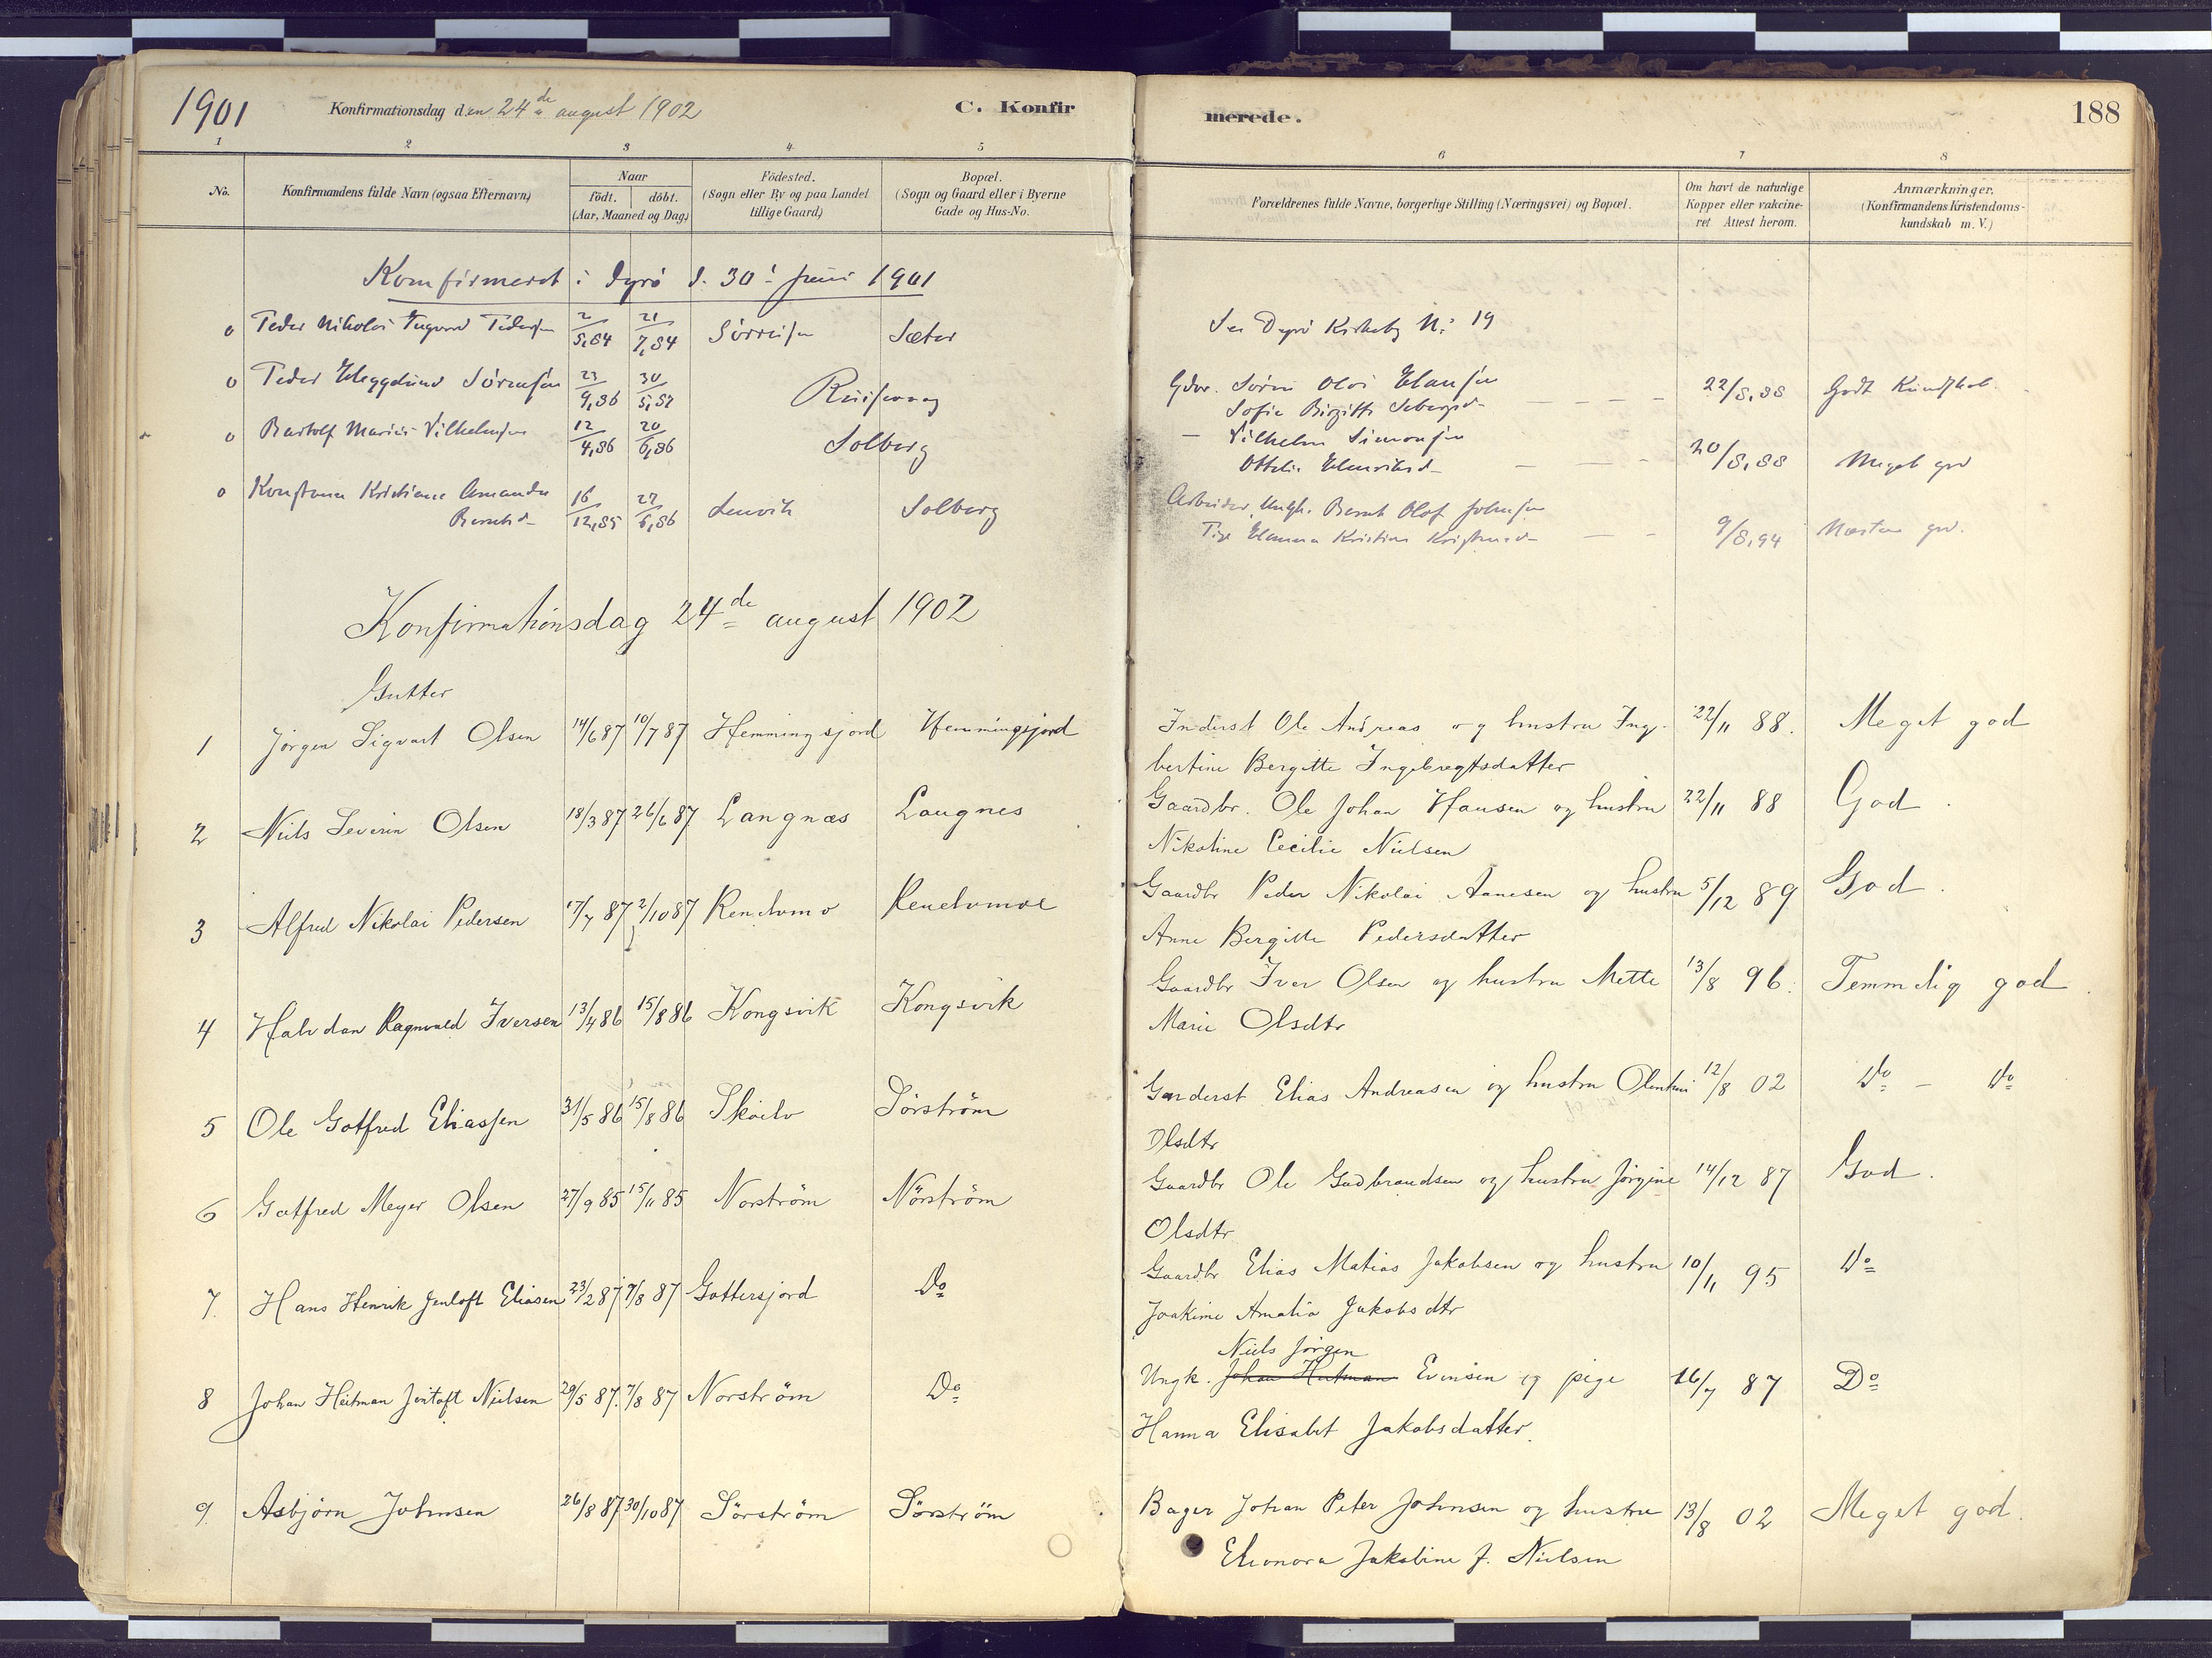 1901 Konfirmationsdag den 24de august 1902 C. Konfirmerede. 188
1 2 3 4 5 6 7 8
No. Konfirmandens fulde Navn (ogsaa Efternavn) Naar födt. döbt. (Aar, Maaned og Dag) Födested. (Sogn eller By og paa Landet tillige Gaard) Bopæl. (Sogn og Gaard eller i Byerne Gade og Hus-No. Forældrenes fulde Navne, borgerlige Stilling (Næringsvei) og Bopæl. Om havt de naturlige Kopper eller vakcineret Attest herom. Anmærkninger. (Konfirmandens Kristendomskundskab m. V.)
Konfirmeret i Dyrö d. 30. Juni 1901
o Peder Nikolai Pedersen 2/5,84 21/7,84 Sörreisa Sæter Se Dyrö No 19
o Peder Sörensen 23/9,86 30/5,87 Gdbr. Sören 22/8,88 Godt Kundskab
Sofie Birgitte
o Bartolf Marius Vilhelmsen 12/4,86 20/6,86 Solberg – Vilhelm Simonsen 20/8,88 Meget god
Ottilie
o Kristiane Amanda 16/12,85 27/6,86 Lenvik Solberg Arbeider, Ungk. Bernt Olof Johnsen 9/8,94 Næsten god.
Berntsd. Pige
Konfirmationsdag 24de august 1902
Gutter
1 Jörgen Sigvart Olsen 14/6 87 10/7 87 Hemmingsjord Hemmingsjord Inderst Ole Andreas og hustru Ing- 22/11 88. Meget god
bertine Bergitte Ingebregtsdatter
2 Nils Severin Olsen 18/3 87 26/6 87 Langnæs Laugnes Gaardbr. Ole Johan Hansen og hustru 22/11 88 God.
Nikoline Cecilie Nielsen
3 Alfred Nikolai Pedersen 17/7 87 2/10 87 Rendumo Gaardbr Peder Nikolai Aanesen og hustru 5/12 89 God.
Anne Bergitte Pedersdatter
4 Halvdan Ragnvald Iversen 13/4 86 15/8 86 Kongsvik Kongsvik Gaardbr Iver Olsen og hustru Mette 13/8 96. Temmelig god.
Marie Olsdtr
5 Ole Gotfred Eliassen 31/5 86 15/8 86 Skoelv Sörström Elias Andreasen og hustru 12/8 02 Do – Do
Olsdtr
6 Gotfred Meyer Olsen 27/9 85 15/11 85 Norström Nörström Gaardbr Ole Gudbrandsen og hustru Jörgine 14/12 87 God.
Olsdtr
7. Hans Henrik Jentoft Eliasen 23/2 87 7/8 87 Gottersjord Do Gaardbr Elias Matias Jakobsen og hustru 10/11 95 Do
Joakime Amalia Jakobsdtr
Niels Jörgen
8 Johan Heitman Jentoft Nielsen 29/5 87. 7/8 87 Norström Do Ungk. Johan Heitman Evensen og pige 16/7 87 Do
Hanna Elisabet Jakobsdatter.
9. Asbjörn Johnsen 26/8 87 30/10 87 Sörström Sörström Bager Johan Peter Johnsen og hustru 13/8 02 Meget god.
Eleonora Jakobine J. Nielsen